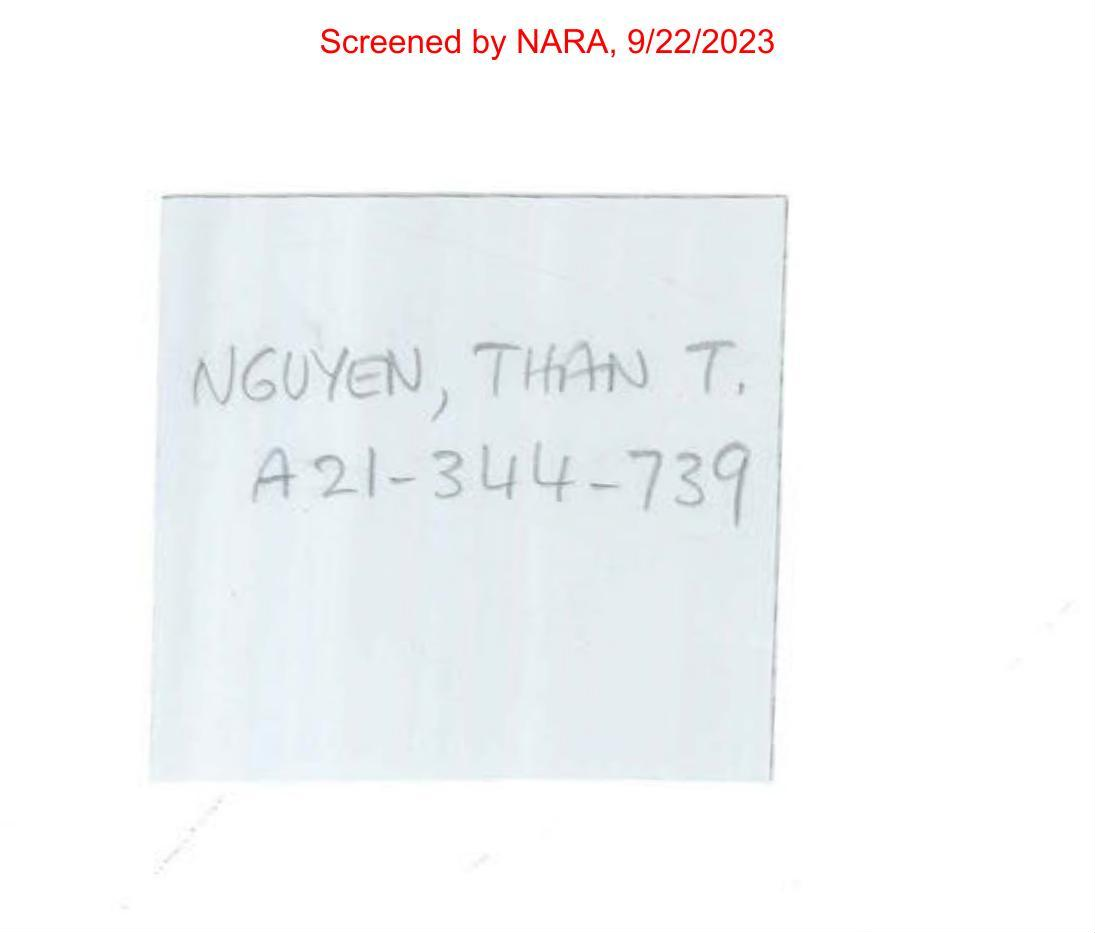 Screened by NARA, 9/22/2023
NGUYEN, THAN T.
A21-344-739